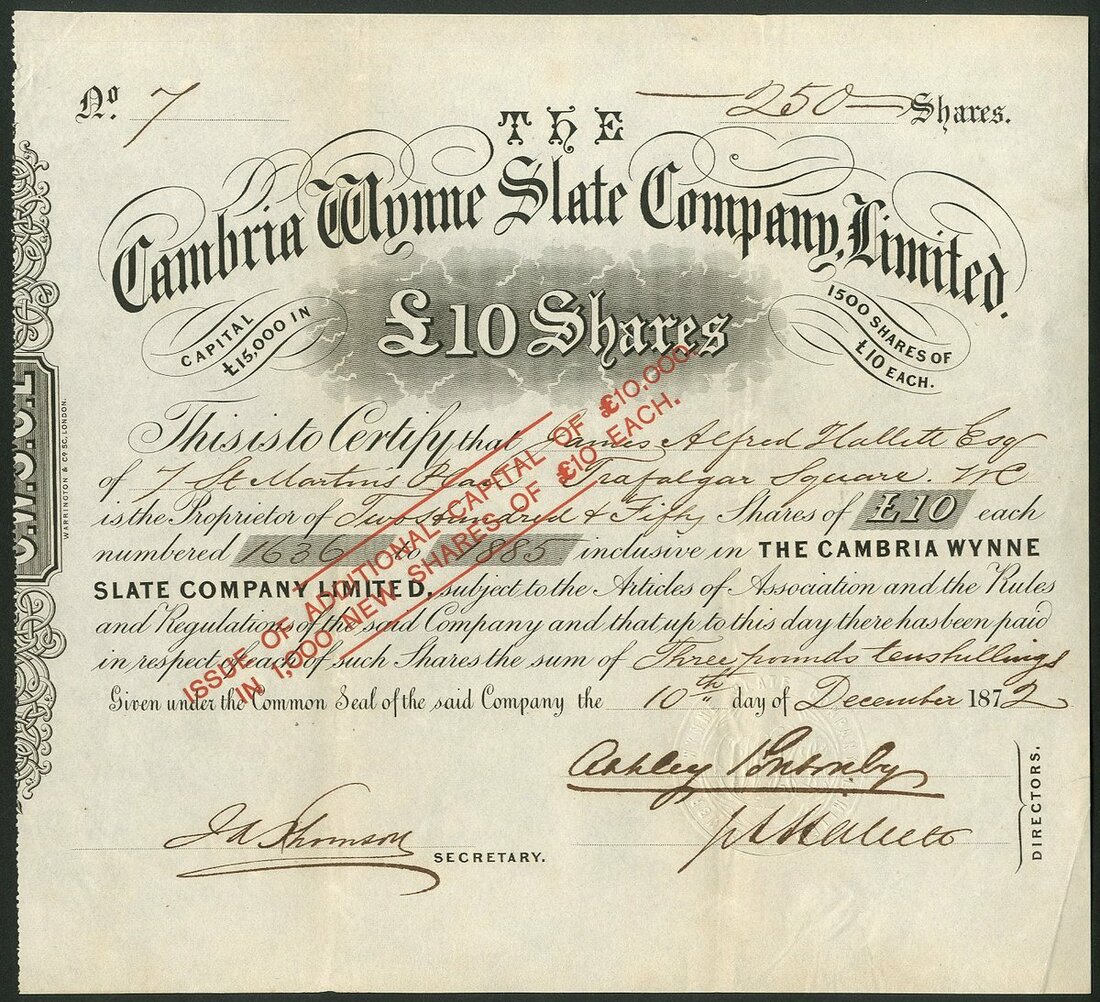 No. 7
250 Shares.
THE
Cambria Wynne Slate Company, Limited.
CAPITAL
£15,000 IN
£10 Shares
1500 SHARES OF
£10 EACH.
This is to Certify that James Alfred Hallett Esq
of 7 St Martins Place Trafalgar Square. WC
is the Proprietor of Two Hundred & Fifty Shares of £10 each
numbered 1636 to 1885 inclusive in THE CAMBRIA WYNNE
SLATE COMPANY LIMITED, subject to the Articles of Association and the Rules
and Regulations of the said Company and that up to this day there has been paid
in respect of each of such Shares the sum of Three pounds ten shillings
Given under the Common Seal of the said Company the 10th day of December 1872
ISSUE OF ADDITIONAL CAPITAL OF £10,000.
IN 1,000 NEW SHARES OF £10 EACH.
Ashley Ponsonby
J A Thomson SECRETARY.
DIRECTORS.
WARRINGTON & CO. SC. LONDON.